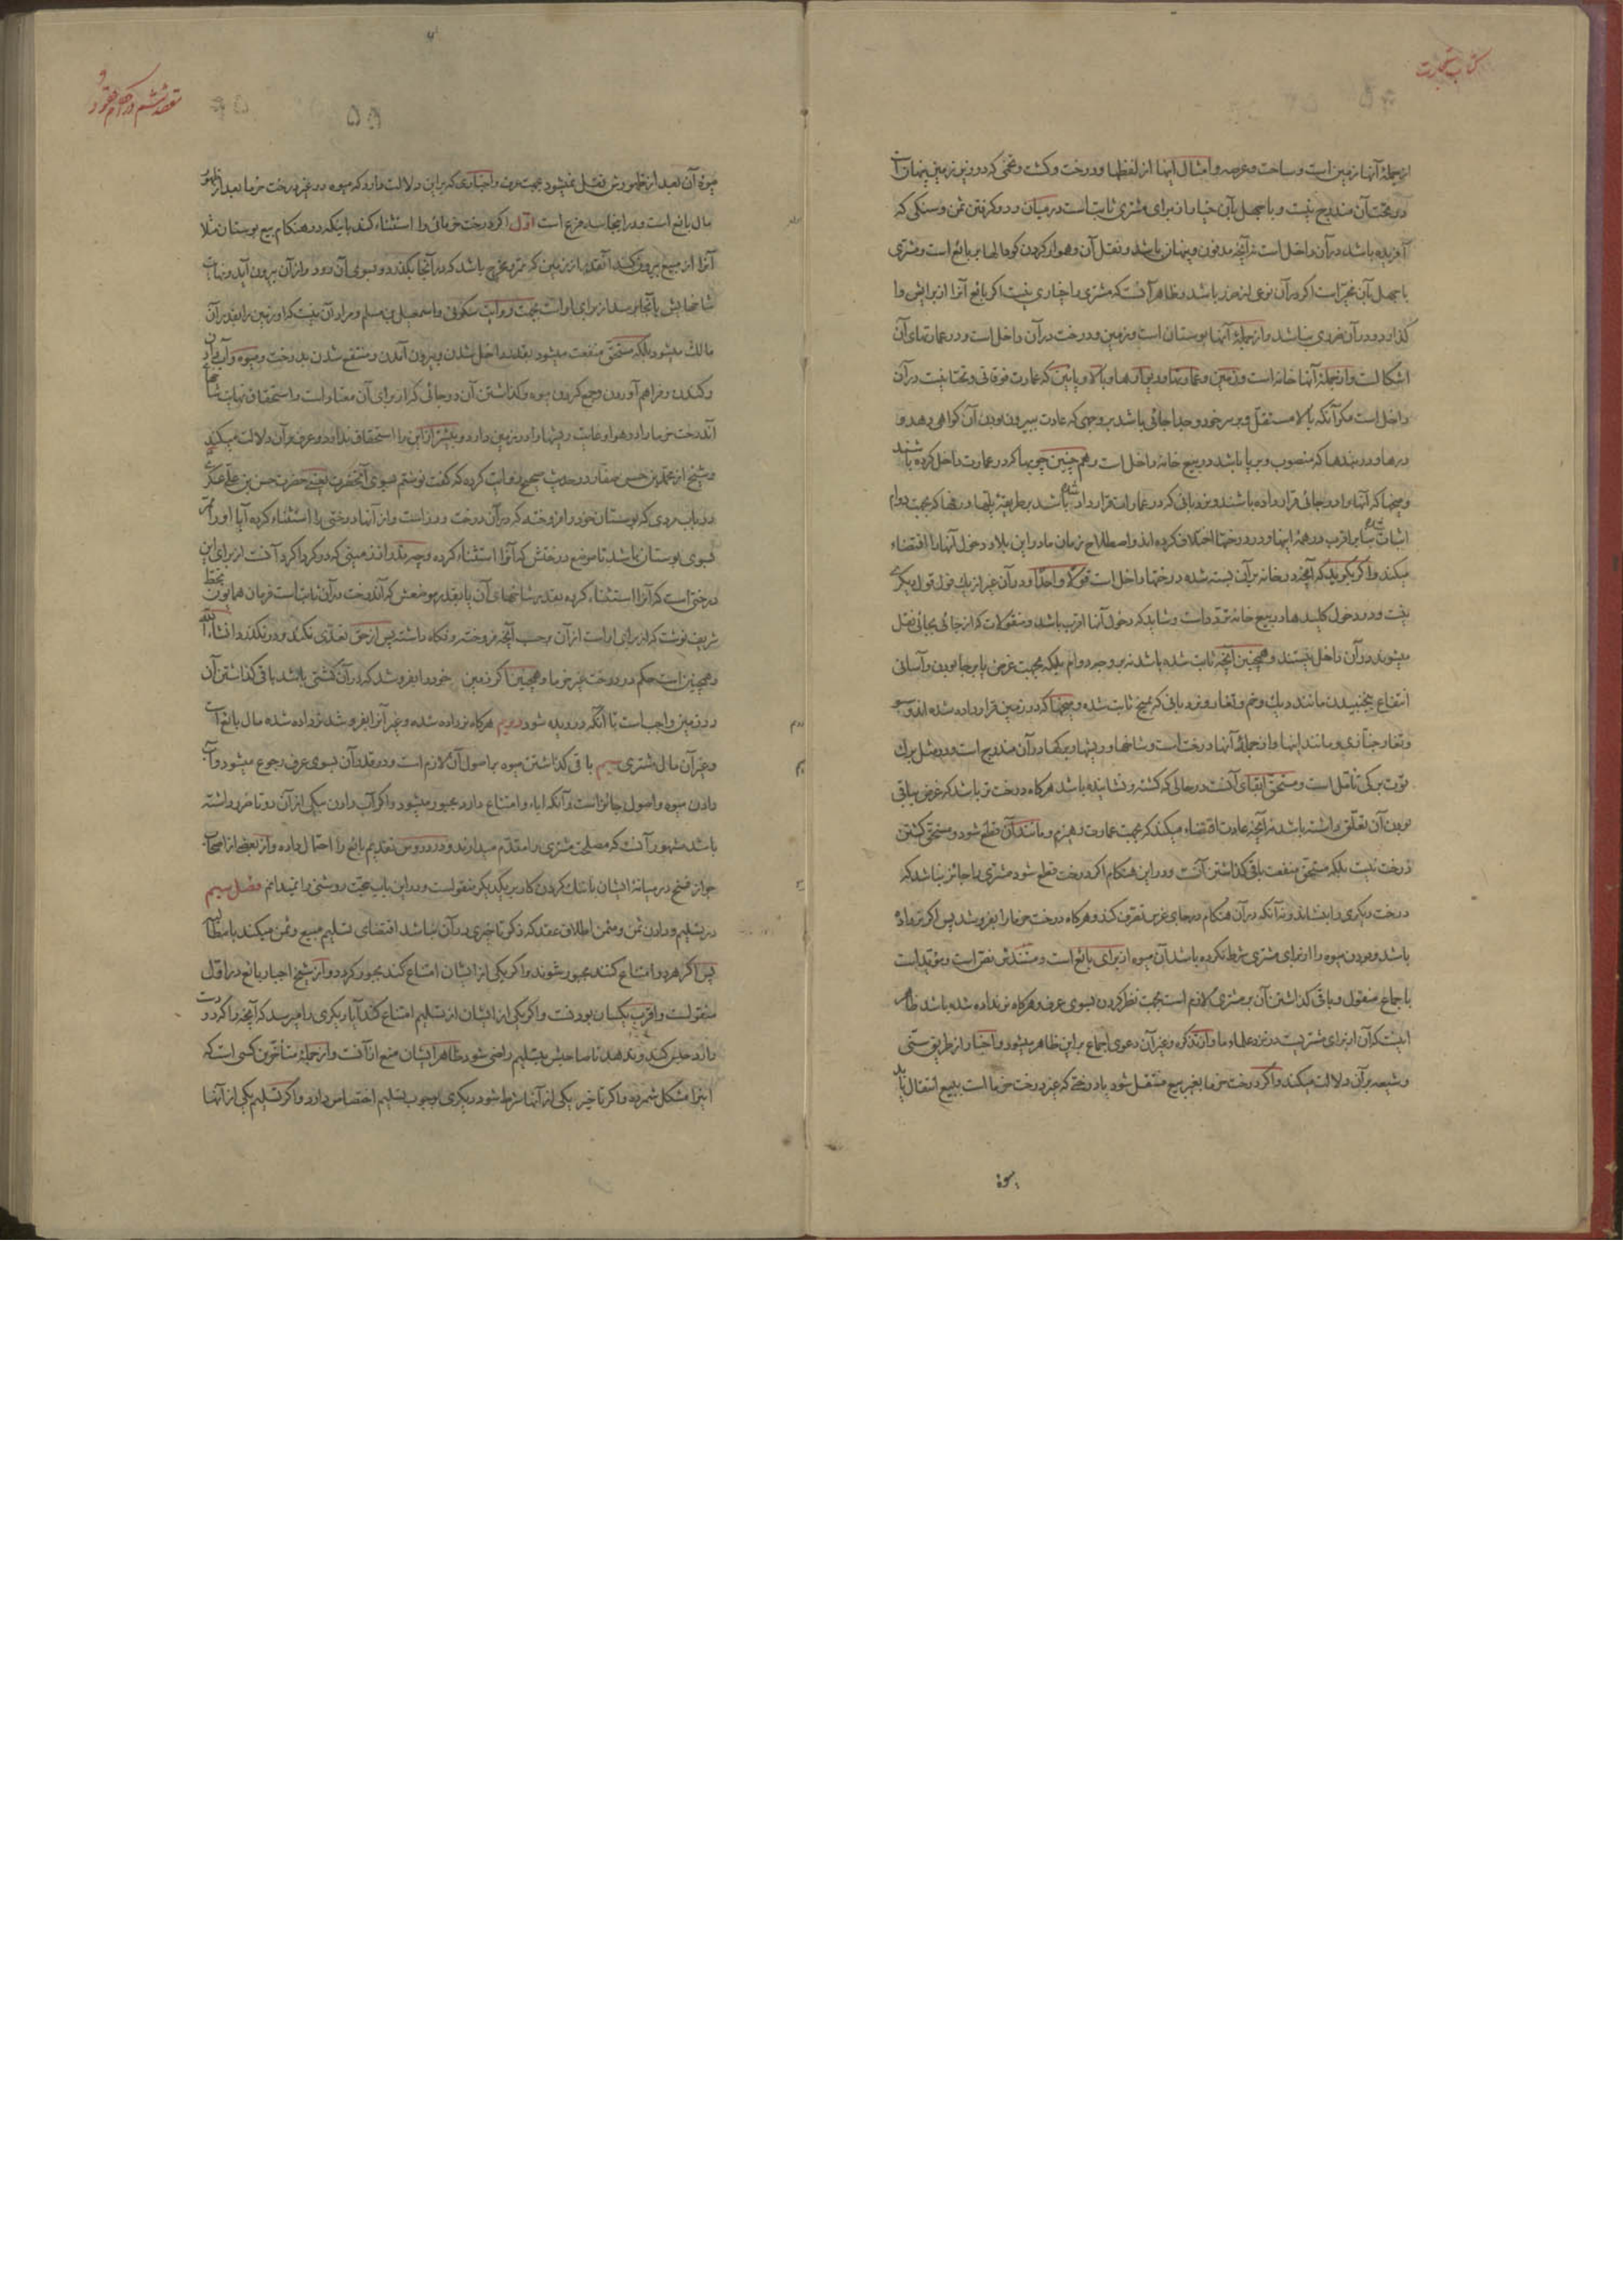 کتاب تجارت
از جملهٔ آنها زمین است و ساحت و عرصه و امثال اینها از لفظها و درخت و کشت و تخمی که در زیر زمین پنهان است
در تحت آن مندرج نیست و با جهل بآن خیار از برای مشتری ثابت است در میان رد و گرفتن ثمن و سنگی که
آفریده باشد در آن داخل است نه آنچه مدفون و پنهان باشد و نقل آن و هموار کردن گودالها بر بایع است و مشتری
با جهل بآن مخیّر است اگر در آن نوعی از ضرر باشد و ظاهر آنست که مشتری را خیاری نیست اگر بایع آنرا از برایش وا
گذارد و در آن ضرری نباشد و از جملهٔ آنها بوستان است و زمین و درخت در آن داخل است و در عمارتهای آن
اشکالست و از جملهٔ آنها خانه است و زمین و عمارتها و دیوارها و بالا و پائین که عمارت فوقانی و تحتانیست در آن
داخل است مگر آنکه بالا مستقلّ و بر سر خود و جدا جائی باشد بر وجهی که عادت ببیرون بودن آن گواهی دهد و
درها و دربندها که منصوب و برپا باشد در بیع خانه داخل است و هم چنین چوبها که در عمارت داخل کرده باشند
و میخها که آنها را در جائی قرار داده باشند و نردبانی که در عمارات قرار داد شده باشد بر طریقهٔ پلّها و رفها که بجهت دوام
اثبات شده بنا بر اقرب در همهٔ اینها و در درختها اختلاف کرده‌اند و اصطلاح زمان ما در این بلاد دخول آنها را اقتضاء
میکند و اگر بگوید که آنچه در خانه بر آن بسته شده درختها داخل است قولاً واحدًا و در آن غیر از یک قول قول دیگری
نیست و در دخول کلیدها در بیع خانه تردّد است و شاید که دخول آنها اقرب باشد و منقولات که از جائی بجائی نقل
میشوند در آن داخل نیستند و همچنین آنچه ثابت شده باشد نه بر وجه دوام بلکه بجهت غرض پا بر جا بودن و آسانی
انتفاع بجنبیدن مانند دیک و خم و تغار و نردبانی که بمیخ ثابت شده و میخها که در زمین قرار داده شده‌اند و
و تغار خبّازی و مانند اینها و از جملهٔ آنها درخت است و شاخها و ریشها و برگها در آن مندرج است و در مثل برگ
توت برگی تأمّل است و مستحقّ ابقای آنست در حالی که کشته و نشانیده باشد هرگاه درخت تر باشد که غرض بباقی
بودن آن تعلّق داشته باشد نه آنچه عادت اقتضاء میکند که بجهت عمارت و هیزم و مانند آن قطع شود و مستحقّ کشتن
درخت نیست بلکه مستحقّ منفعت باقی گذاشتن آنست و در این هنگام اگر درخت قطع شود مشتری را جائز نباشد که
درخت دیگری را بنشاند و نه آنکه در آن هنگام در جای غرس تصرف کند و هرگاه درخت خرما را بفروشد پس اگر نر داده
باشد و بودن میوه را از برای مشتری شرط نکرده باشد آن میوه از برای بایع است و مستندش نصّ است و مؤیّد است
باجماع منقول و باقی گذاشتن آن بر مشتری لازم است بجهت نظر کردن بسوی عرف و هرگاه نر نداده شده باشد ظاهر
اینست که آن از برای مشتریست در نزد علماء ما و از تذکره و غیر آن دعوی اجماع بر این ظاهر میشود و اخبار از طریق سنّی
و شیعه بر آن دلالت میکند و اگر درخت خرما بغیر بیع منتقل شود یا درختی که غیر درخت خرما است ببیع انتقال یابد
میوهٔ
مقصد ششم در احکام عقود و
۵۵
میوهٔ آن بعد از ظهورش منتقل نمیشود بجهت عرف و اخباری که بر این دلالت دارد که میوه در غیر درخت خرما بعد از ظهور
مال بایع است و در اینجا سه فرع است اوّل اگر درخت خرمائی را استثناء کند باینکه در هنگام بیع بوستان مثلا
آنرا از مبیع بیرون کند آنقدر از زمین که ممرّ و مخرج باشد که در آنجا بگذرد و بسوی آن رود و از آن بیرون آید و نهایت
شاخهایش بآنجا برسد از برای اوست بجهت روایت سکونی و اسمعیل بن مسلم و مراد آن نیست که او زمین را بقدر آن
مالک میشود بلکه مستحقّ منفعت میشود بقدر داخل شدن و بیرون آمدن و منتفع شدن بدرخت و میوه و آب دادن
و کندن و فراهم آوردن و جمع کردن میوه و گذاشتن آن در جائی که از برای آن معتاد است و استحقاق نهایت شاخهای
آندرخت خرما را در هوا و غایت ریشها را در زمین دارد و بیشتر از این را استحقاق ندارد و عرف بر آن دلالت میکند
و شیخ از محمّد بن حسن صفّار در حدیث صحیح روایت کرده که گفت نوشتم بسوی آنحضرت یعنے حضرت حسن بن علے عسکری
در باب مردی که بوستان خود را فروخته که در آن درخت و رز است و از آنها درختی را استثناء کرده آیا او را ممرّ
بسوی بوستان باشد تا موضع درختش که آنرا استثناء کرده و چه قدر از زمینی که در گرداگرد آنست از برای این
درختی است که آنرا استثناء کرده بقدر شاخهای آن یا بقدر موضعش که آندرخت در آن ثابت است فرمان همایون بخطّ
شریف نوشت که از برای اوست از آن بر حسب آنچه فروخته و نگاه داشته پس از حق تعدّی نکند و در نگذرد انشاء اللّه
و همچنین است حکم در درخت غیر خرما و همچنین اگر زمین خود را بفروشد که در آن کشتی باشد باقی گذاشتن آن
در زمین واجب است تا آنکه درویده شود دویم هرگاه نر داده شده و غیر آنرا بفروشد نر داده شده مال بایع است
و غیر آن مال مشتری سیم باقی گذاشتن میوه بر اصول آن لازم است و در قدر آن بسوی عرف رجوع میشود و آب
دادن میوه و اصول جائز است و آنکه اباء و امتناع دارد مجبور میشود و اگر آب دادن یکی از آن دو تا ضرر داشته
باشد مشهور آنست که مصلحت مشتری را مقدّم میدارند و در دروس تقدیم بایع را احتمال داده و از بعضی از اصحاب
جواز فسخ در میانهٔ ایشان با تنک کردن کار بر یکدیگر منقولست و در این باب حجّت روشنی را نمیدانم فصل سیم
در تسلیم و دادن ثمن و مثمن اطلاق عقد که ذکر تأخیری در آن نباشد اقتضای تسلیم مبیع و ثمن میکند با مطالبه
پس اگر هر دو امتناع کنند مجبور شوند و اگر یکی از ایشان امتناع کند مجبور گردد و از شیخ اجبار بایع در اوّل
منقولست و اقرب یکسان بودنست و اگر یکی از ایشان از تسلیم امتناع کند آیا دیگری را میرسد که آنچه را که در دست
دارد حبس کند و ندهد تا صاحبش بتسلیم راضی شود ظاهر ایشان منع از آنست و از جملهٔ متأخّرین کسی است که
اینرا مشکل شمرده و اگر تأخیر یکی از آنها شرط شود دیگری بوجوب تسلیم اختصاص دارد و اگر تسلیم یکی از آنها